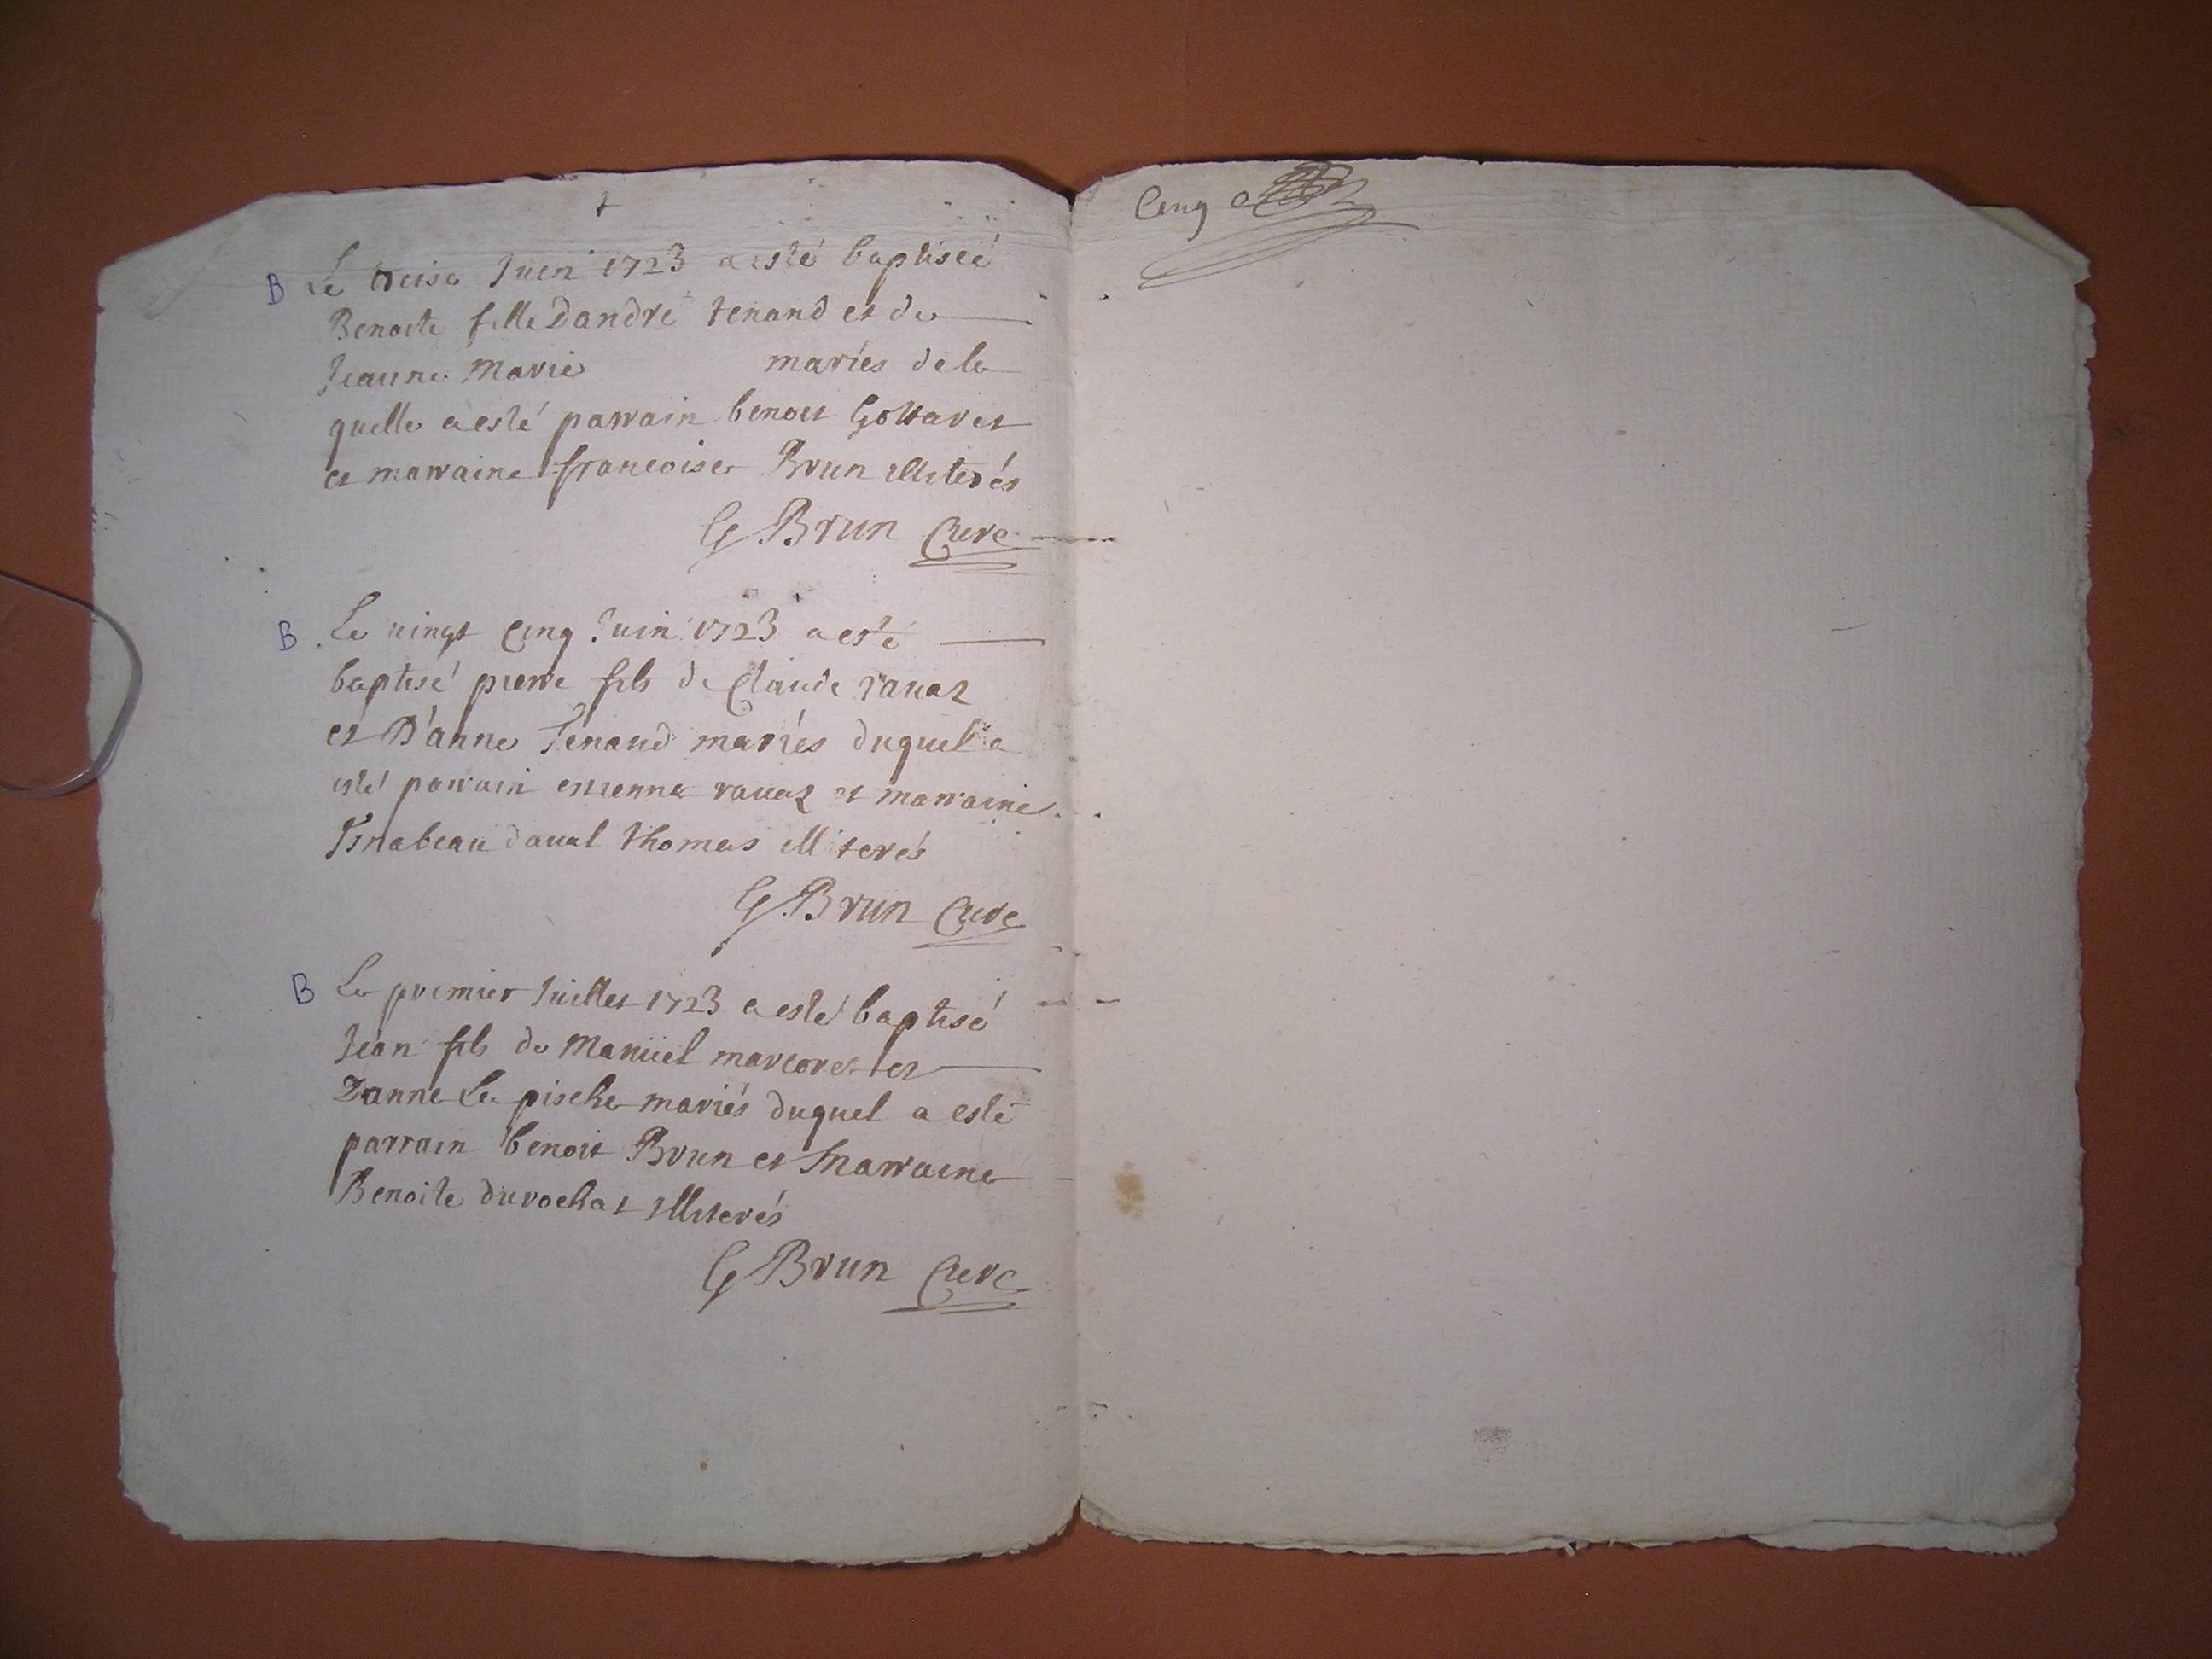 B Le treise Juin 1723 a esté baptiseé
Benoite fille Dandré tenand et de
Jeanne Marie mariés de la
quelle a esté parrain benoit Gottaret
et marraine francoise Brun illiterés
G Brun Curé
B Le vingt Cinq Juin 1723 a esté
baptisé pierre fils de Claude ravaz
et D'anne Tenand mariés duquel a
esté parrain estienne ravaz et marraine
Ysabeau daval thomas illiterés
G Brun Curé
B Le premier Juillet 1723 a esté baptisé
Jean fils de Manüel marcoret et
Danne La pische mariés duquel a esté
parrain benoit Brun et Marraine
Benoite durochat illiterés
G Brun Curé
Cinq